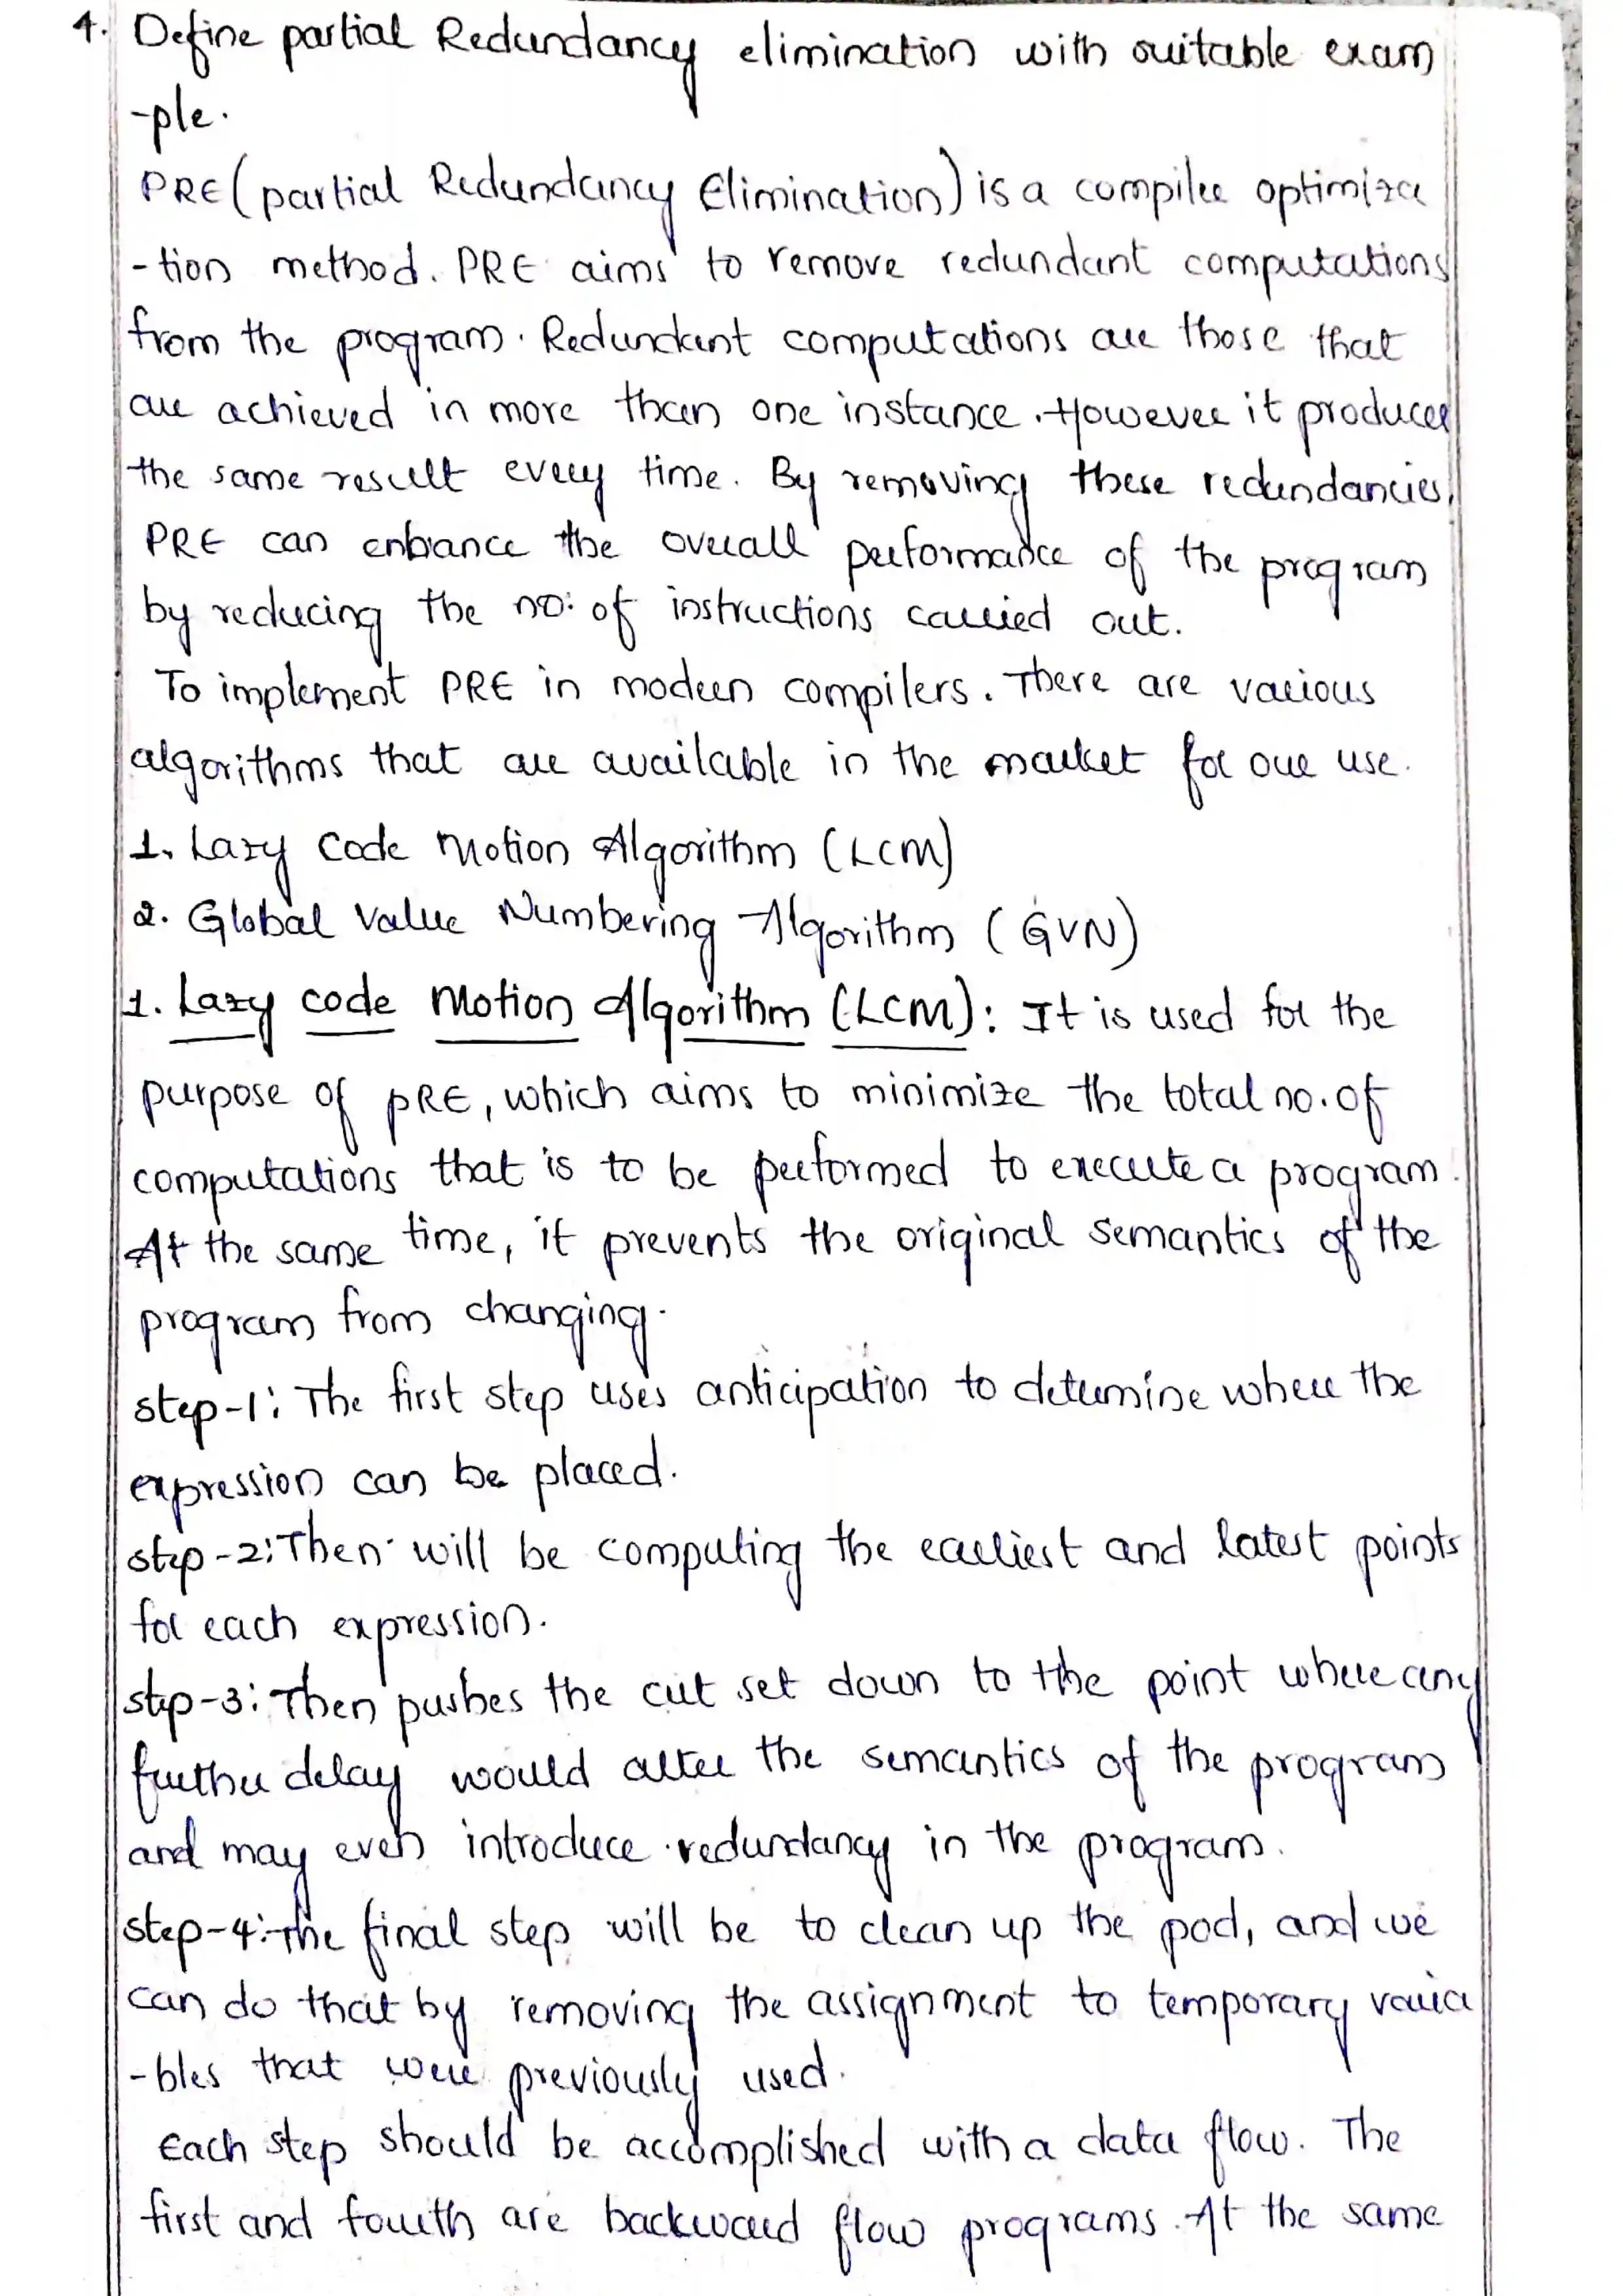 4. Define partial Redundancy elimination with suitable exam
-ple.
PRE (partial Redundancy Elimination) is a compiler optimiza
-tion method. PRE aims to remove redundant computations
from the program. Redundant computations are those that
are achieved in more than one instance. However it produces
the same result every time. By removing these redundancies,
PRE can enhance the overall performance of the program
by reducing the no: of instructions carried out.
To implement PRE in modern compilers. There are various
algorithms that are available in the market for our use.
1. Lazy Code Motion Algorithm (LCM)
2. Global Value Numbering Algorithm (GVN)
1. Lazy code Motion Algorithm (LCM): It is used for the
purpose of PRE, which aims to minimize the total no. of
computations that is to be performed to execute a program.
At the same time, it prevents the original semantics of the
program from changing.
step-1: The first step uses anticipation to determine where the
expression can be placed.
step-2: Then will be computing the earliest and latest points
for each expression.
step-3: Then pushes the cut set down to the point where any
further delay would alter the semantics of the program
and may even introduce redundancy in the program.
step-4: The final step will be to clean up the pod, and we
can do that by removing the assignment to temporary varia
-bles that were previously used.
Each step should be accomplished with a data flow. The
first and fourth are backward flow programs. At the same